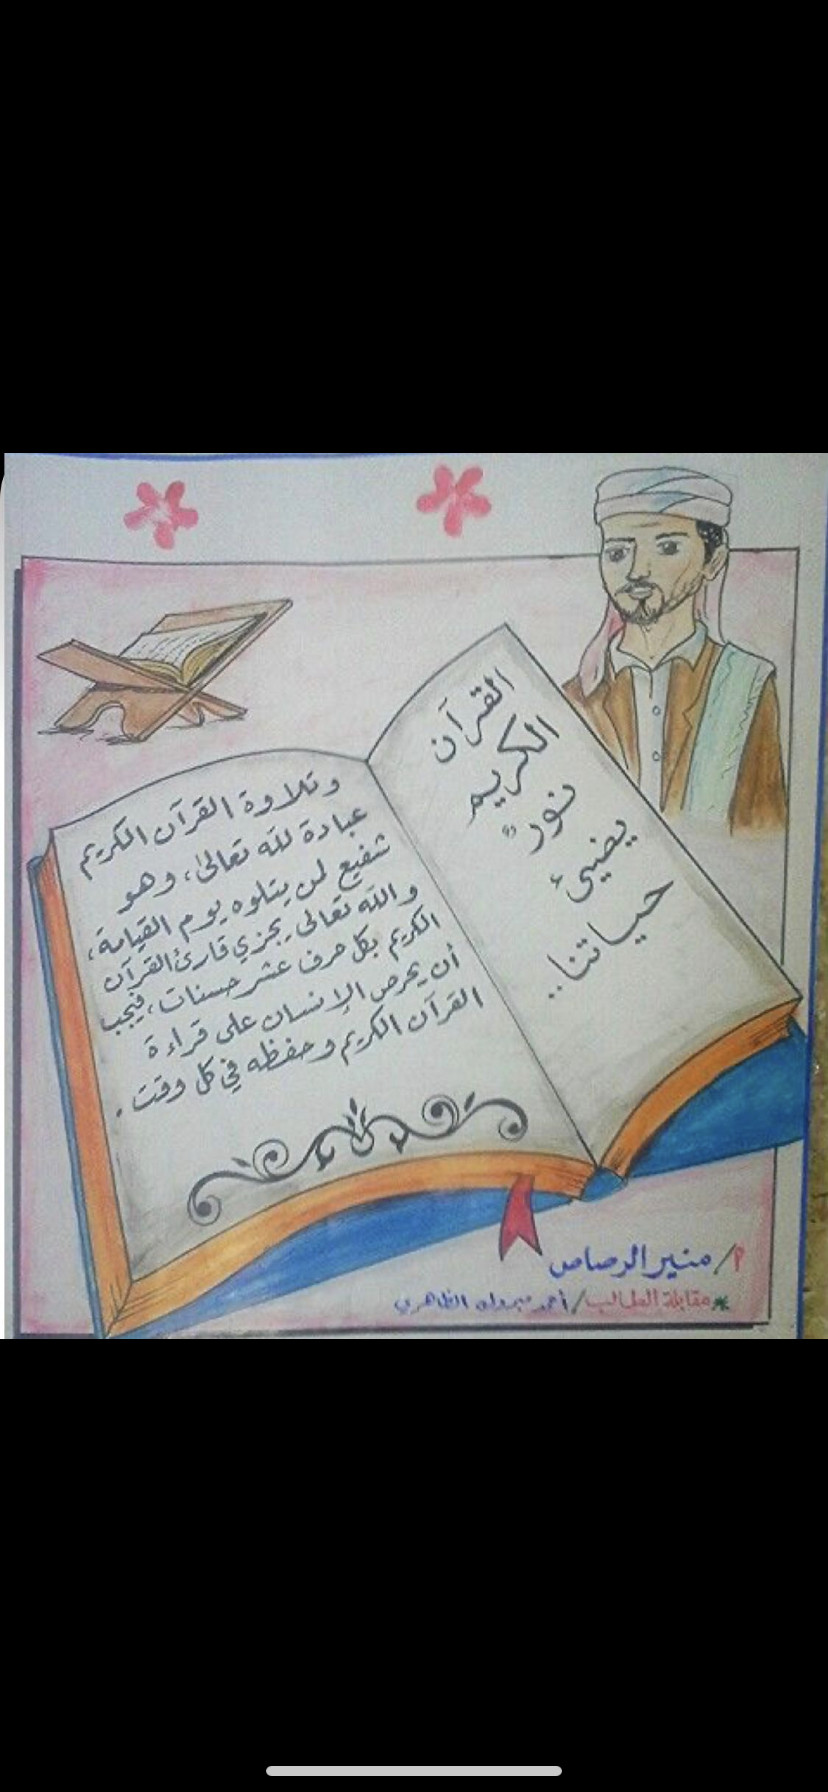 القرآن
الكريم
نورٌ
يضيئ
حياتنا..
وتلاوة القرآن الكريم
عبادة لله تعالى، وهو
شفيع لمن يتلوه يوم القيامة،
والله تعالى يجزي قارئ القرآن
الكريم بكل حرف عشر حسنات، فيجب
أن يحرص الإنسان على قراءة
القرآن الكريم وحفظه في كل وقت.
م/ منير الرصاص
*مقابلة الطالب/ أحمد الظاهري